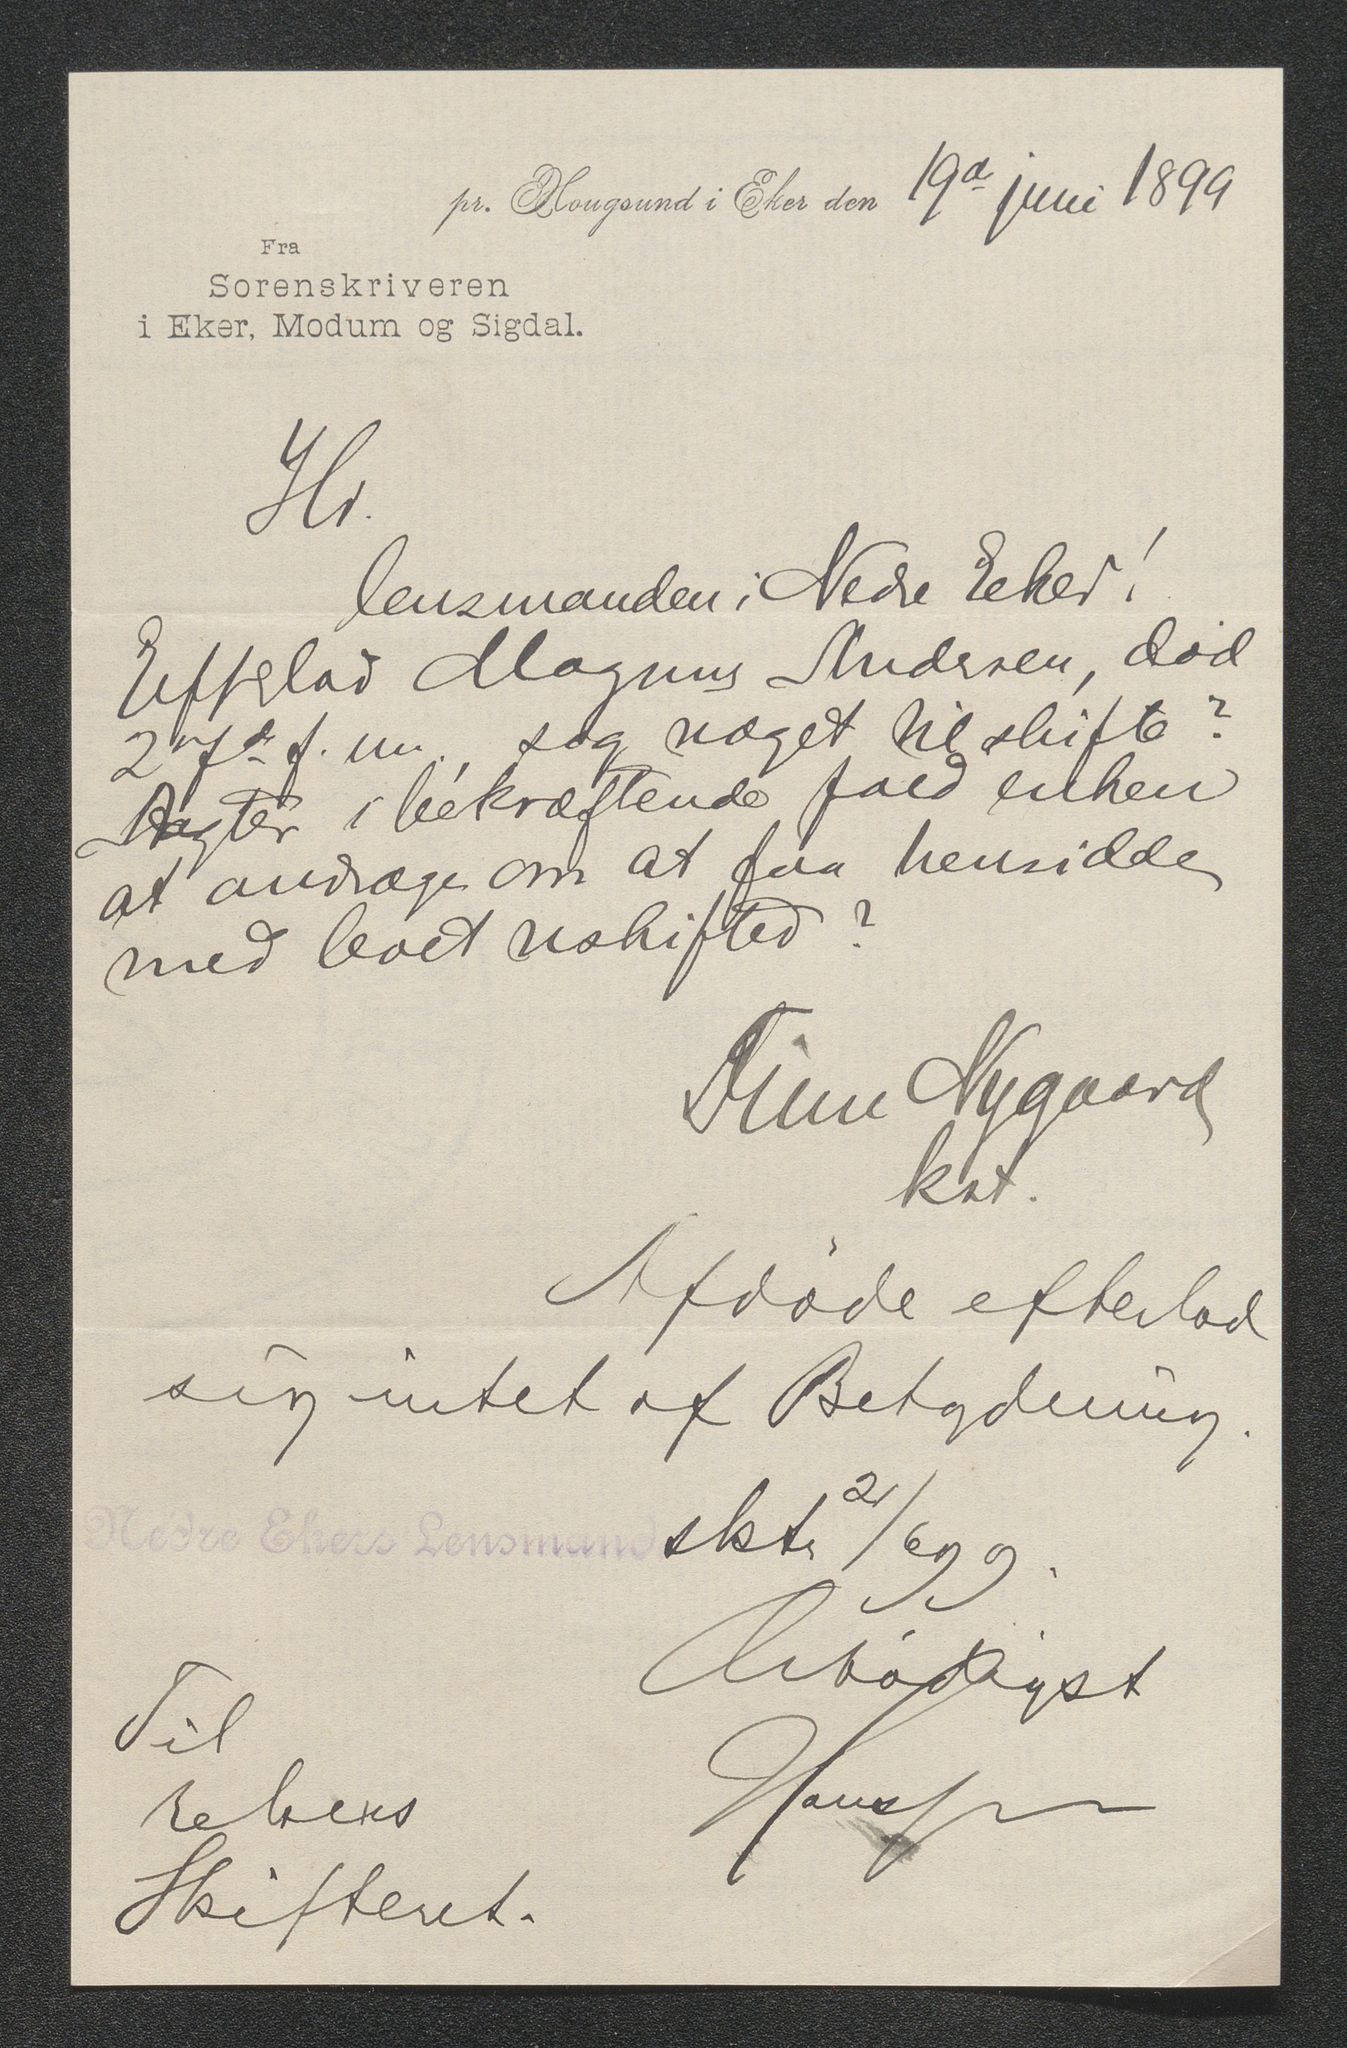 pr. Hougsund i Eker den 19de juni 1899
Fra
Sorenskriveren
i Eker, Modum og Sigdal.
Hr.
lensmanden i Nedre Eeker!
Efterlod Magnus Andersen, død
27de f. m., sog noget til skifte?
Agter i bekræftende fald enken
at andrage om at faa hensidde
med boet uskifted?
Finn Nygaard
kst.
Afdøde efterlod
sig intet af Betydning.
Nedre Ekers Lensmand sktr 21/6 99.
Ærbødigst
Til
Ekers
Skifteret.